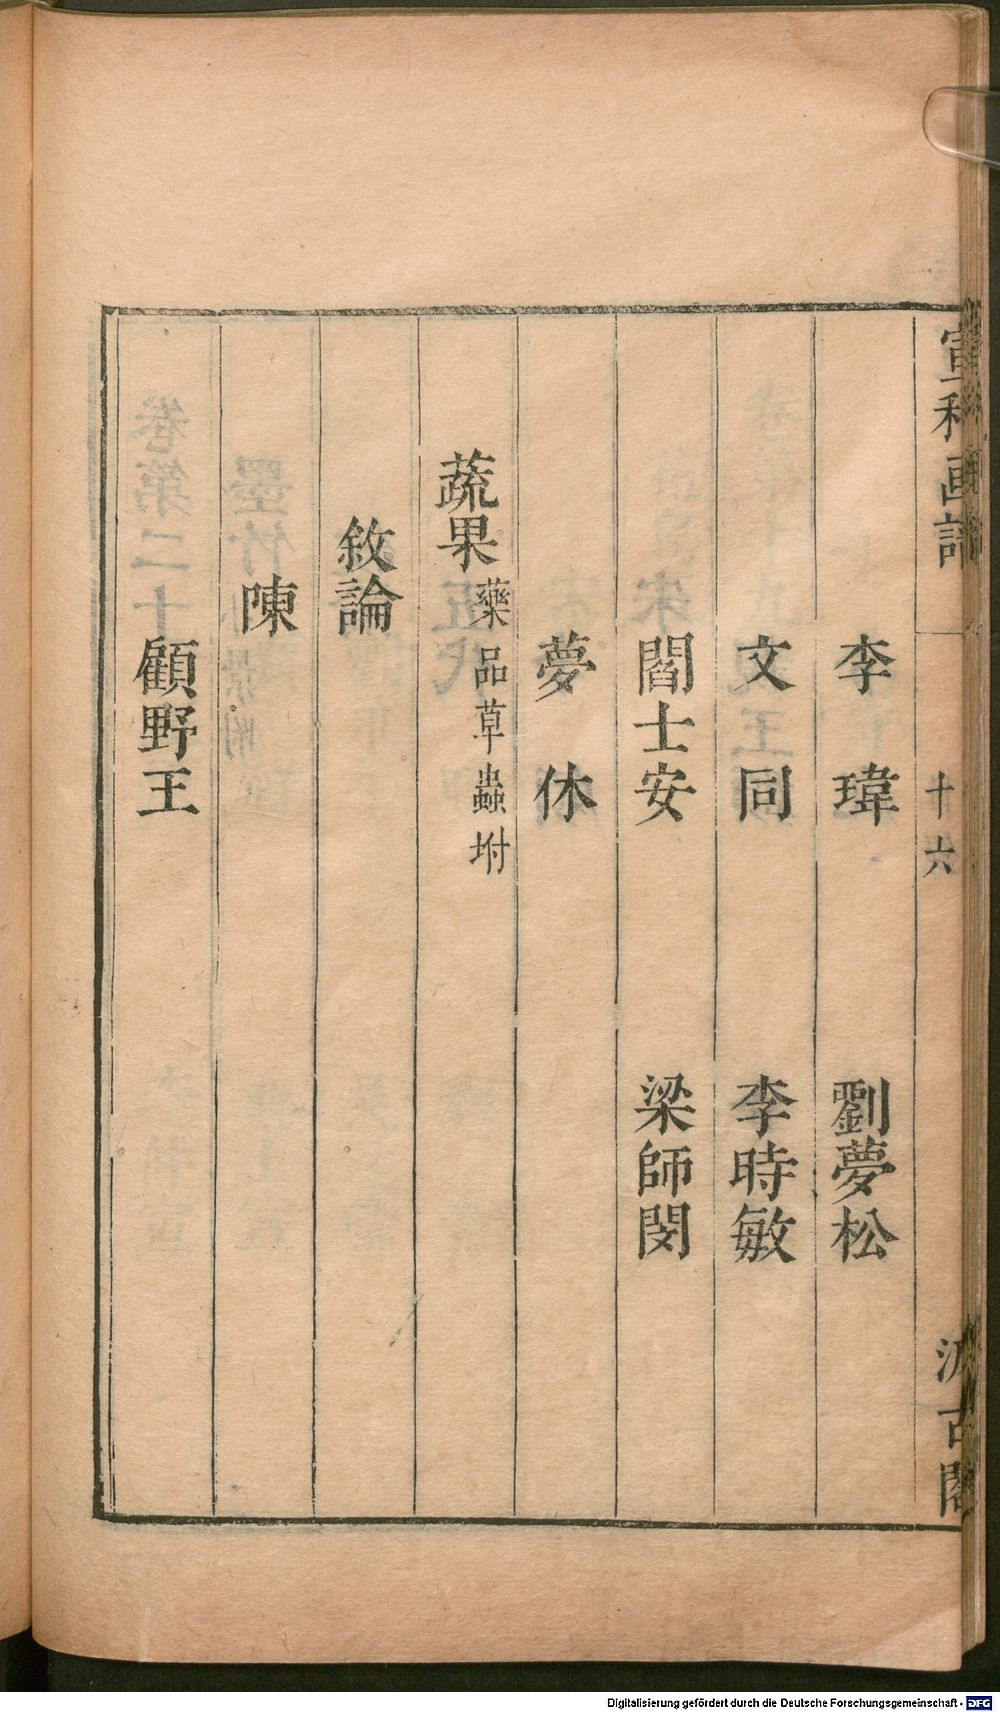 宣和画譜
十六
汲古閣
李瑋 劉夢松
文同 李時敏
閻士安 梁師閔
夢休
蔬果 藥品草蟲坿
敘論
陳
顧野王
Digitalisierung gefördert durch die Deutsche Forschungsgemeinschaft - DFG